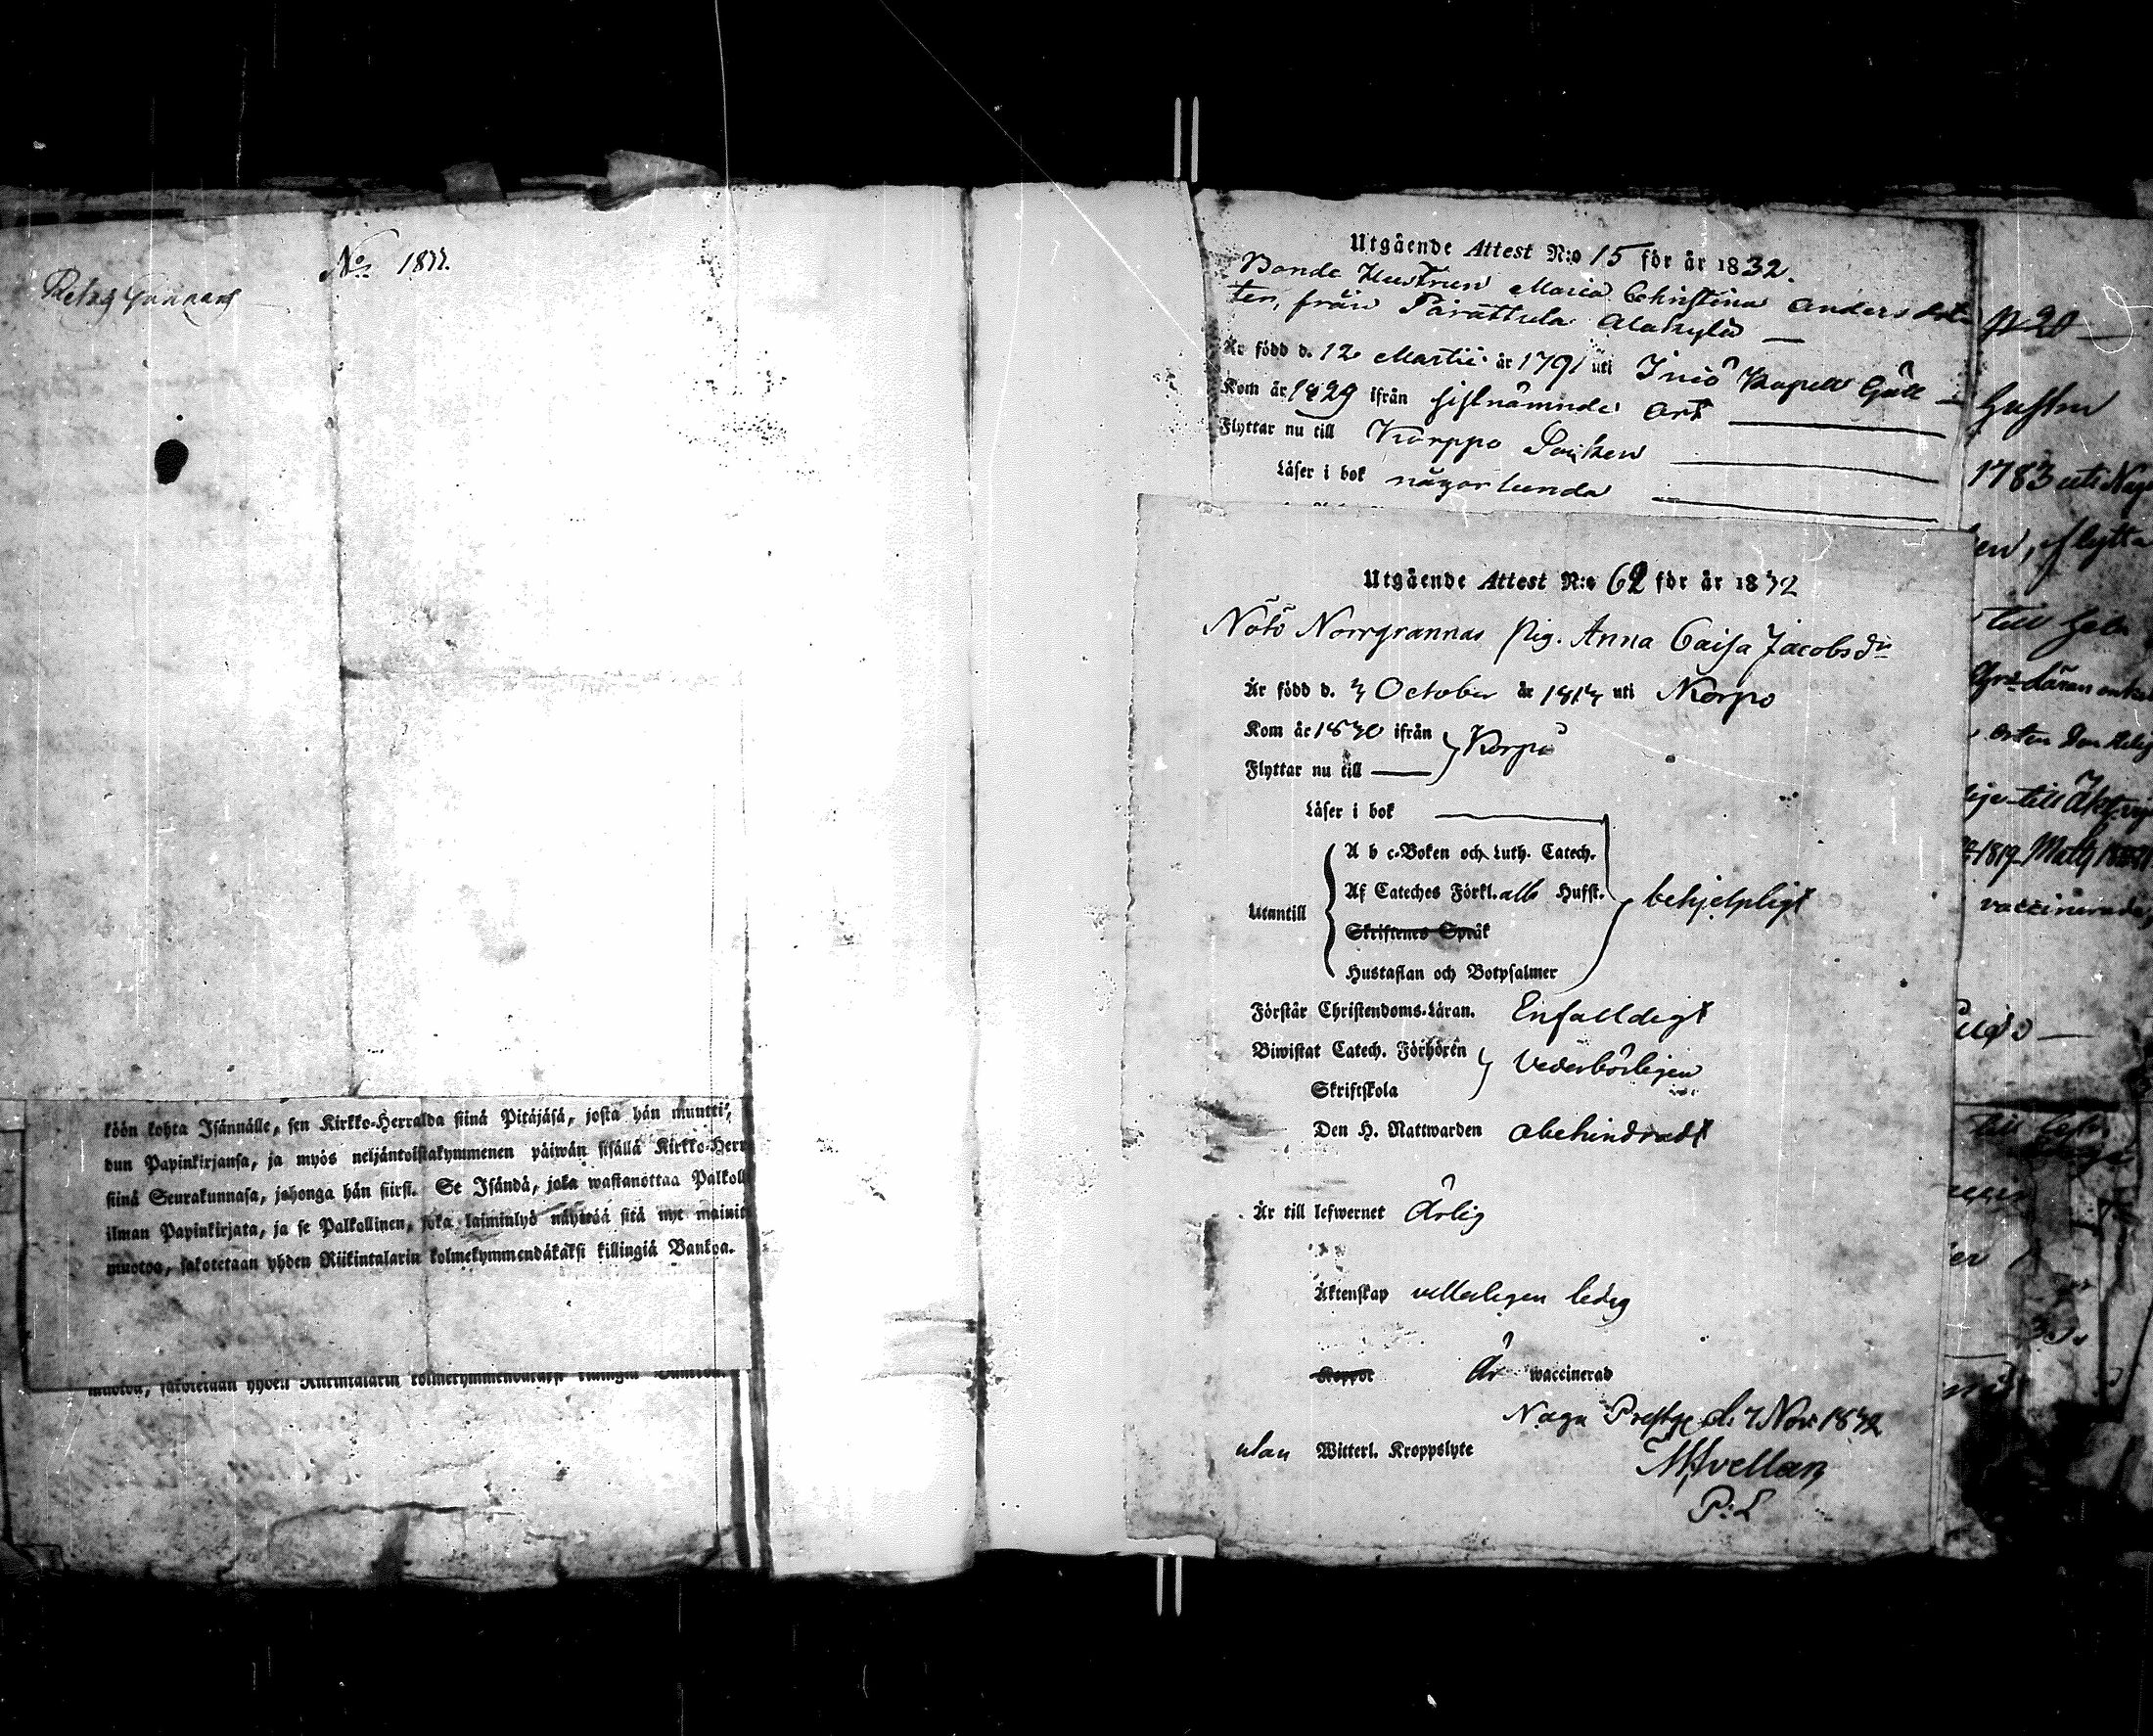 No 1832.
köön kohta Isännälle, sen Kirkko-Herralda siinä Pitäjäsä, josta hän muutti,
dun Papinkirjansa, ja myös neljäntoistakymmenen päiwän sisällä Kirkko-Herr
siinä Seurakunnasa, johonga hän siirsi. Se Isändä, joka wastanottaa Palkoll
ilman Papinkirjata, ja se Palkollinen, joka laiminlyö näyttää sitä nyt mainit
muotoa, sakotetaan yhden Riikintalarin kolmekymmendäkaksi killingiä Bankoa.
muotoa, sakotetaan yhden Riikintalarin kolmekymmendäkaksi killingiä
Utgående Attest N:o 15 för år 1832.
Bonde Hustrun Maria Christina Anders dot
ter, från Parattula Alakylä
Är född d. 12 Martii år 1791 uti Iniö Kapell Gäll
Kom år 1829 ifrån sistnämnde ort
Flyttar nu till Korppo Socken
Läser i bok någorlunda
Utgående Attest N:o 62 för år 1832
Nötö Norrgrannas Pig. Anna Caisa Jacobsdr
Är född d. 3 October år 1813 uti Korpo
Kom år 1830 ifrån
Flyttar nu till
Korpo
Läser i bok
A b c-Boken och Luth. Catech.
Af Cateches Förkl. alla Hufst.
Utantill
behjelpligt
Skriftenes Språk
Hustaflan och Botpsalmer
Förstår Christendoms-Läran. Enfalldigt
Biwistat Catech. Förhören
Vederbörligen
Skriftskola
Den H. Nattwarden obehindradt
Är till lefwernet Ärlig
Äktenskap ledig
Koppor Är waccinerad
Nagu Prestg. d. 7 Nov. 1832
utan Witterl. Kroppslyte
P: L
p 20
1783 uti Nagu
flytta
till
orten
till
1819
vaccinerad